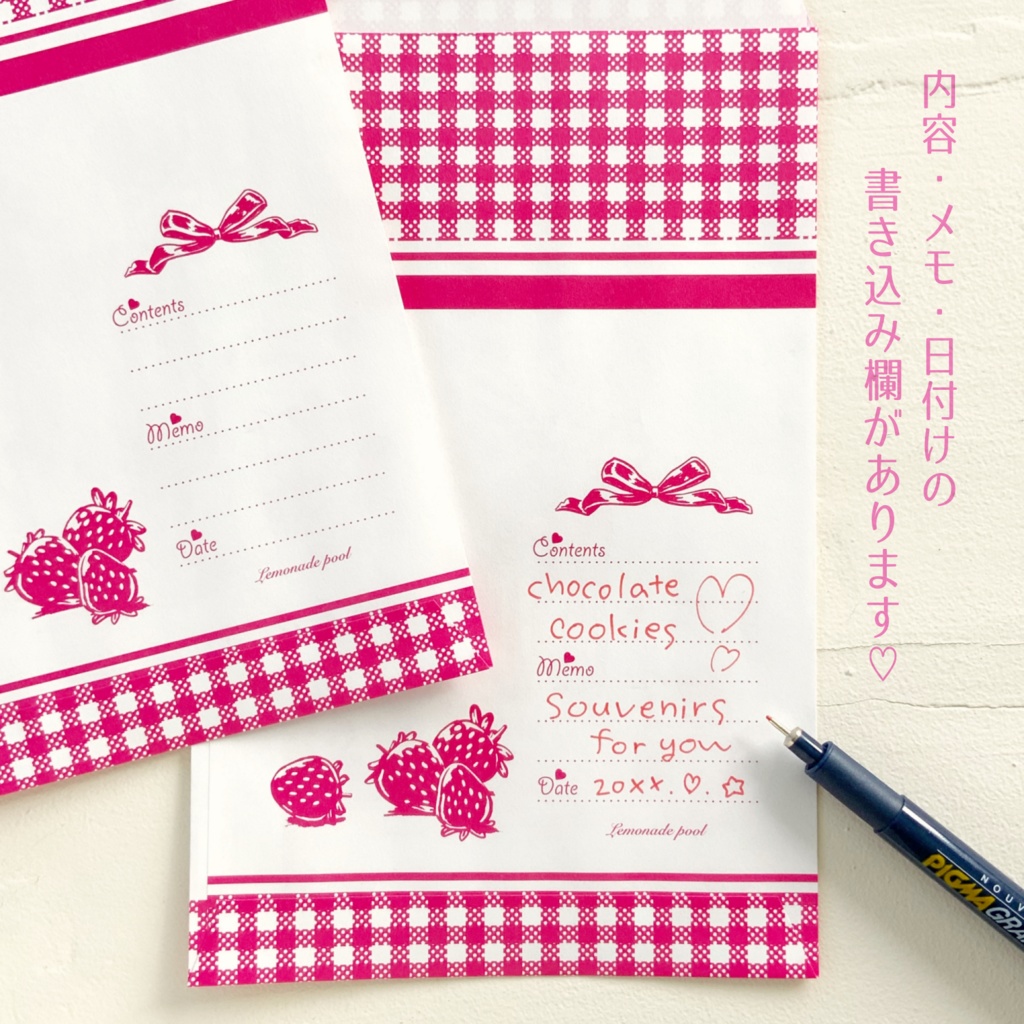 内容・メモ・日付けの
書き込み欄があります♡
Contents
Memo
Date
Lemonade pool
Contents
chocolate
cookies
Memo
Souvenirs
for you
Date 20xx.♡.☆
Lemonade pool
NOUV
PIGMA GRA